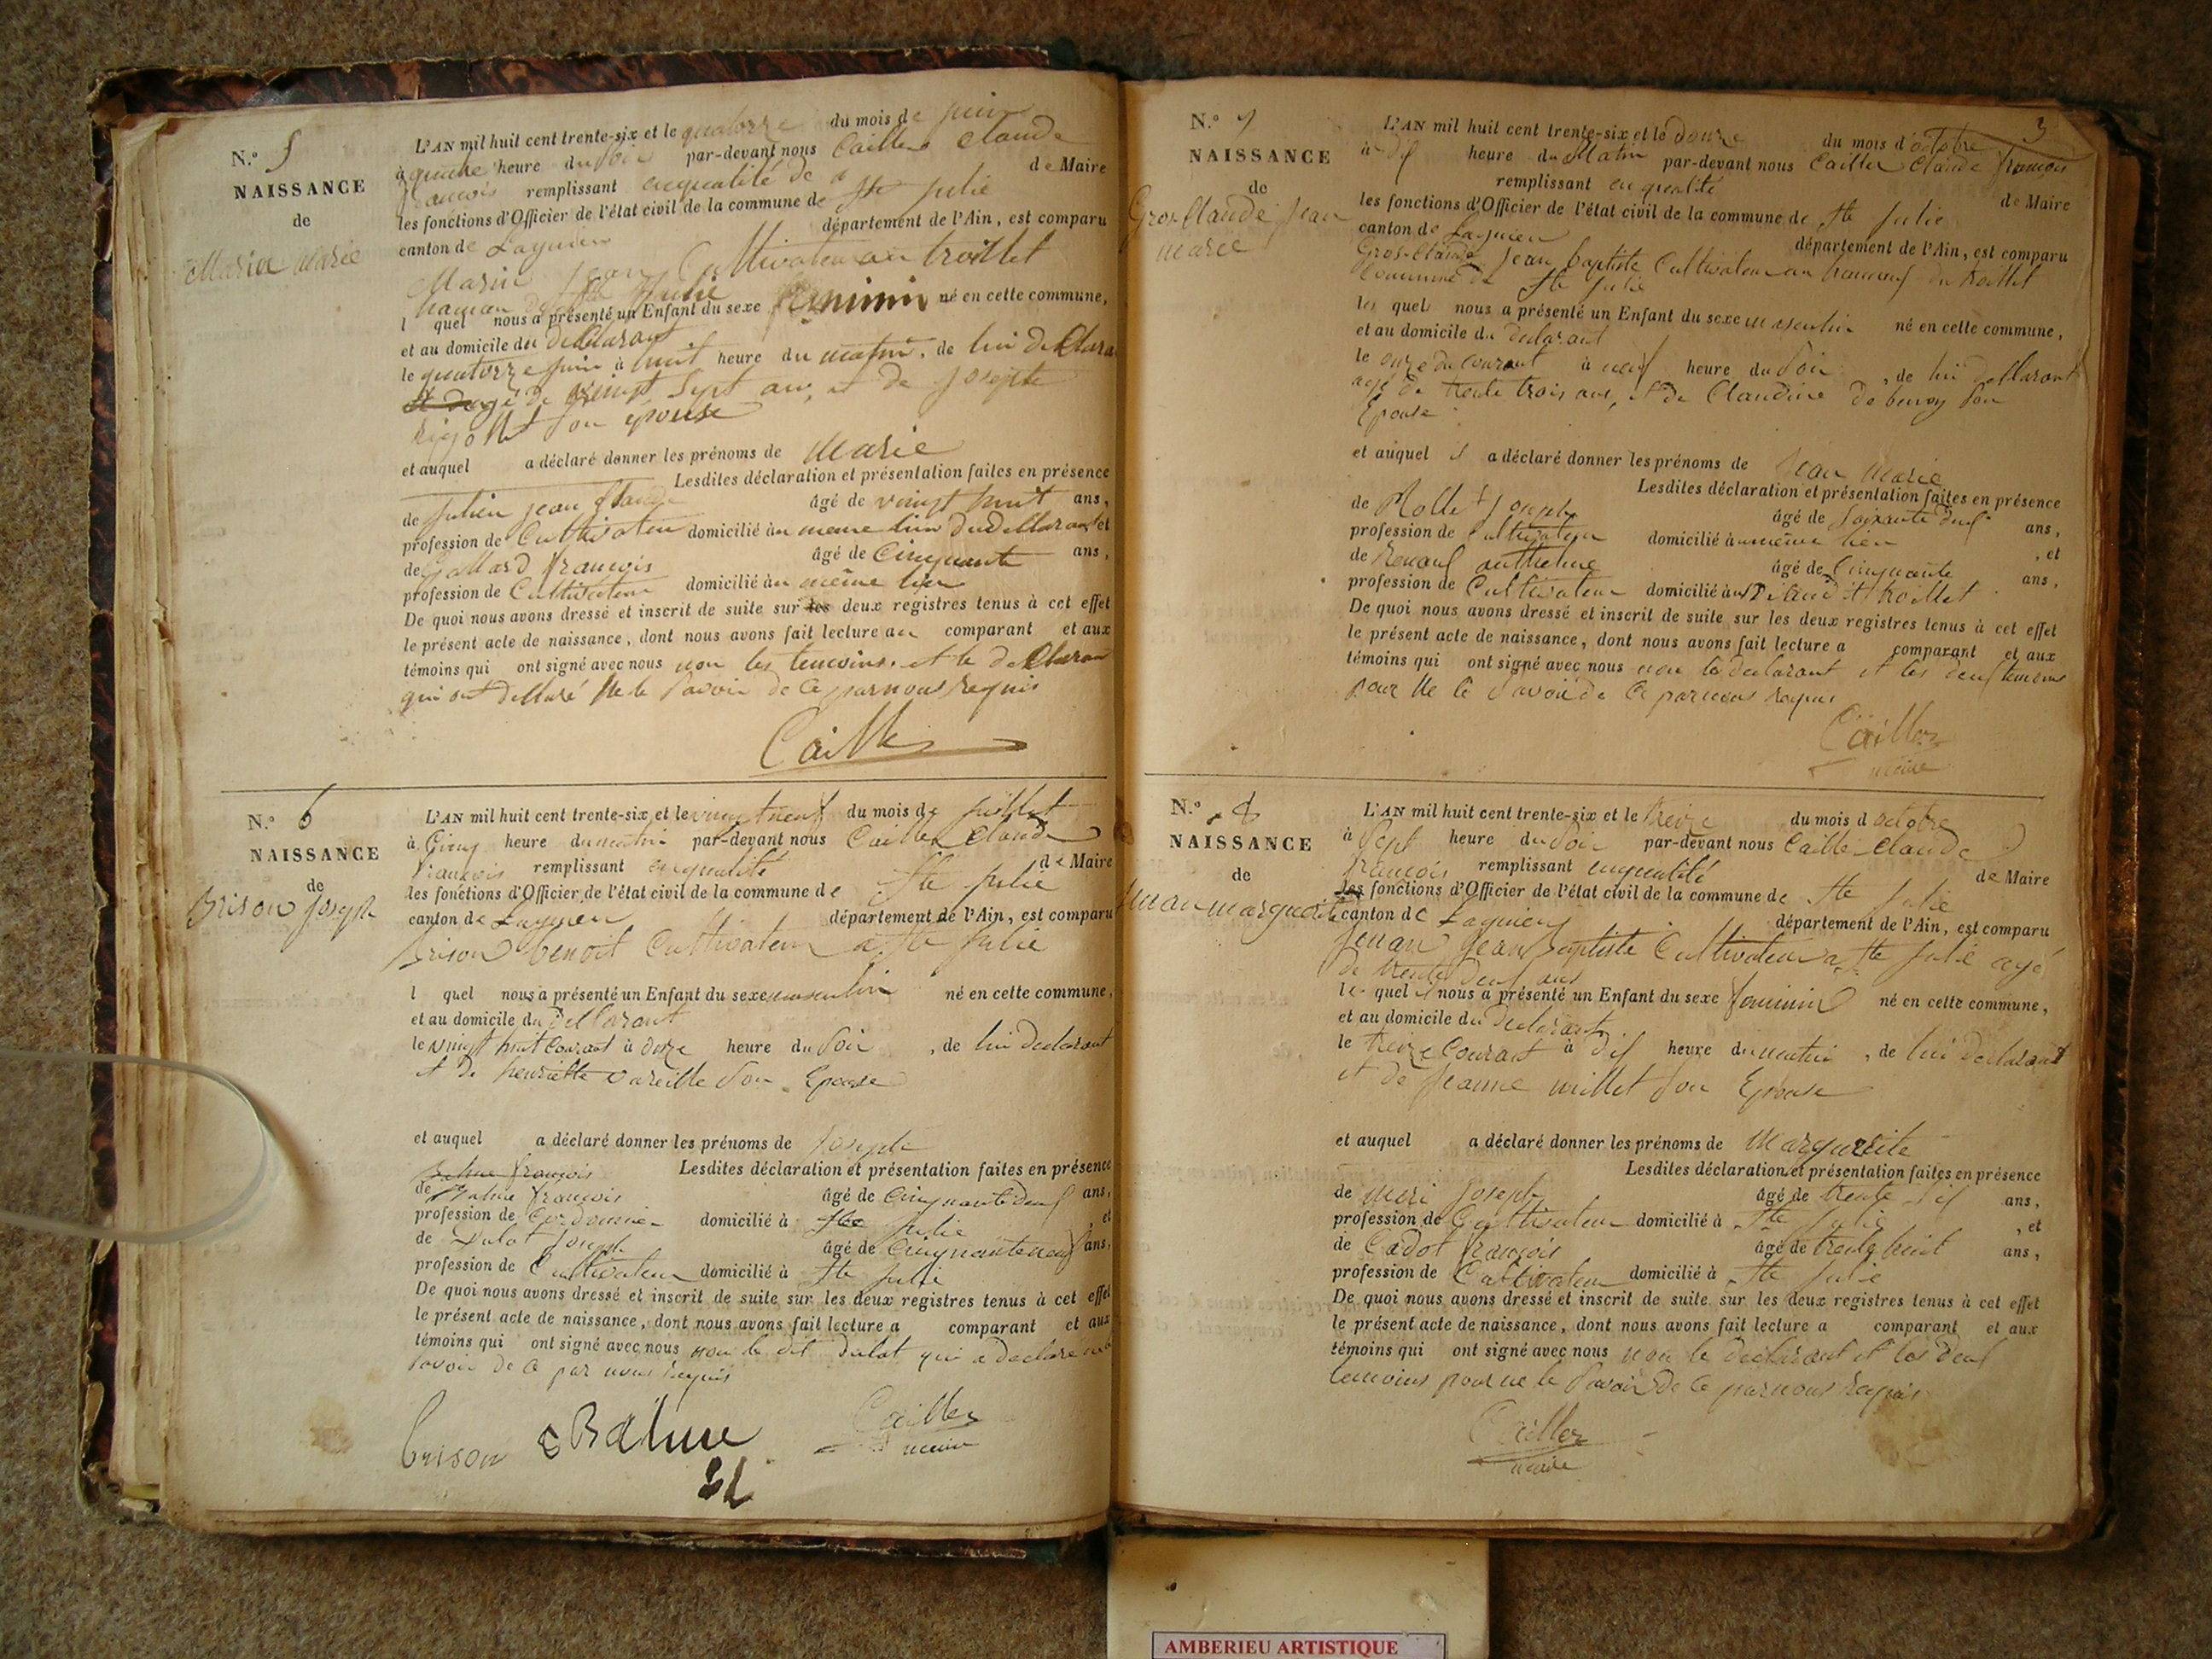 N.º 5
NAISSANCE
de
Marin Marie
L'AN mil huit cent trente-six et le quatorze du mois de juin
à heure du soir par-devant nous Cailler Claude
françois remplissant en qualité de
les fonctions d'Officier de l'état civil de la commune de Ste Julie de Maire
canton de Lagnieu département de l'Ain, est comparu
Marin Jean Cultivateur au trollet
hameau de Ste Julie
l quel nous a présenté un Enfant du sexe féminin né en cette commune,
et au domicile du déclarant
le quatorze juin à huit heure du matin, de lui déclarant
agé de vingt sept ans, et de Josephte
son épouse
et auquel a déclaré donner les prénoms de Marie
Lesdites déclaration et présentation faites en présence
de Julien jean Claude âgé de vingt huit ans,
profession de Cultivateur domicilié au meme lieu du déclarant et
de Gallard françois âgé de Cinquante ans,
profession de Cultivateur domicilié au même lieu
De quoi nous avons dressé et inscrit de suite sur les deux registres tenus à cet effet
le présent acte de naissance, dont nous avons fait lecture au comparant et aux
témoins qui ont signé avec nous non les temoins et le déclarant
qui ont déclaré ne le savoir de ce par nous requis
Cailler
N.º 6
NAISSANCE
de
Brison Joseph
L'AN mil huit cent trente-six et le vingt neuf du mois de juillet
à Cinq heure du matin par-devant nous Cailler Claude
françois remplissant en qualité de Maire
les fonctions d'Officier de l'état civil de la commune de Ste Julie
canton de Lagnieu département de l'Ain, est comparu
brison benoit Cultivateur a Ste Julie
l quel nous a présenté un Enfant du sexe masculin né en cette commune,
et au domicile du déclarant
le vingt huit courant à onze heure du soir, de lui declarant
et de henriette vareille son Epouse
et auquel a déclaré donner les prénoms de Joseph
balme françois Lesdites déclaration et présentation faites en présence
de balme françois âgé de Cinquante deux ans,
profession de Cordonnier domicilié à Ste Julie, et
de Dulat Joseph âgé de Cinquante neuf ans,
profession de Cultivateur domicilié à Ste Julie
De quoi nous avons dressé et inscrit de suite sur les deux registres tenus à cet effet
le présent acte de naissance, dont nous avons fait lecture a comparant et aux
témoins qui ont signé avec nous non le dit dulat qui a declare ne
savoir de ce par nous requis
brison Balme Cailler
maire
N.º 7
NAISSANCE
de
Gros Claude Jean
marie
3
L'AN mil huit cent trente-six et le douze du mois d'octobre
à dix heure du Matin par-devant nous Cailler Claude françois
remplissant en qualité de Maire
les fonctions d'Officier de l'état civil de la commune de Ste Julie
canton de Lagnieu département de l'Ain, est comparu
Gros Claude Jean baptiste Cultivateur au hameau du trollet
Commune de Ste Julie
les quel nous a présenté un Enfant du sexe masculin né en cette commune,
et au domicile du declarant
le onze du courant à neuf heure du soir, de lui declarant
agé de trente trois ans, et de Claudine son
Epouse
et auquel il a déclaré donner les prénoms de Jean Marie
Lesdites déclaration et présentation faites en présence
de Rollet Joseph âgé de soixante deux ans,
profession de Cultivateur domicilié au même lieu, et
de Renaud antheline âgé de Cinquante ans,
profession de Cultivateur domicilié au trollet
De quoi nous avons dressé et inscrit de suite sur les deux registres tenus à cet effet
le présent acte de naissance, dont nous avons fait lecture a comparant et aux
témoins qui ont signé avec nous non le declarant et les deux temoins
pour ne le savoir de ce par nous requis
Cailler
maire
N.º 8
NAISSANCE
de
Marguerite
L'AN mil huit cent trente-six et le treize du mois d octobre
à sept heure du soir par-devant nous Cailler Claude
françois remplissant en qualité de Maire
les fonctions d'Officier de l'état civil de la commune de Ste Julie
canton de Lagnieu département de l'Ain, est comparu
Jean baptiste Cultivateur a Ste Julie agé
de trente deux ans
le quel nous a présenté un Enfant du sexe feminin né en cette commune,
et au domicile du declarant
le treize Courant à dix heure du matin, de lui declarant
et de Jeanne millet son Epouse
et auquel a déclaré donner les prénoms de Marguerite
Lesdites déclaration et présentation faites en présence
de Joseph âgé de trente dix ans,
profession de Cultivateur domicilié à Ste Julie, et
de Cadot françois âgé de trente huit ans,
profession de Cultivateur domicilié à Ste Julie
De quoi nous avons dressé et inscrit de suite sur les deux registres tenus à cet effet
le présent acte de naissance, dont nous avons fait lecture a comparant et aux
témoins qui ont signé avec nous non le declarant et les deux
temoins pour ne le savoir de ce par nous requis
Cailler
maire
AMBERIEU ARTISTIQUE